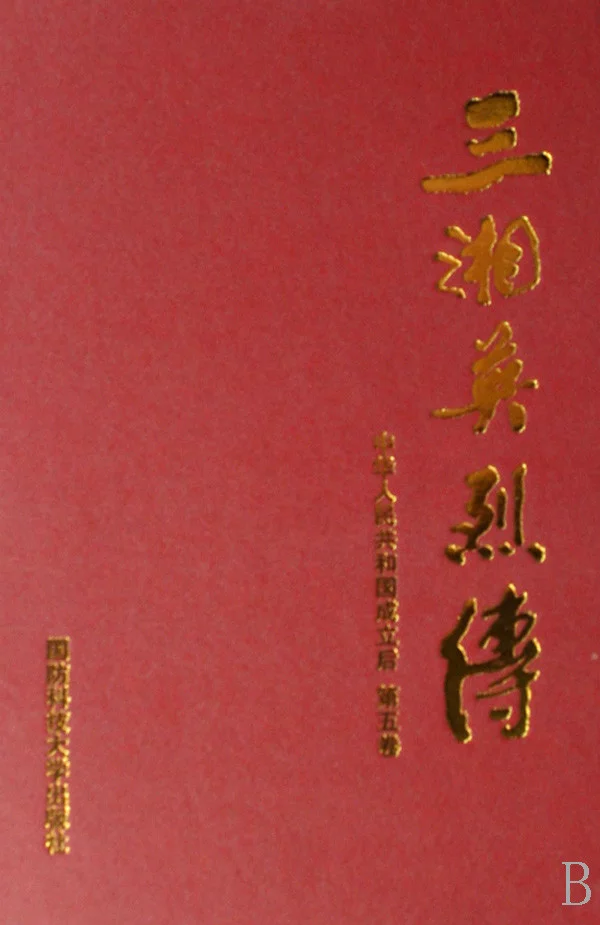 三湘英烈傳
中华人民共和国成立后 第五卷
国防科技大学出版社
B